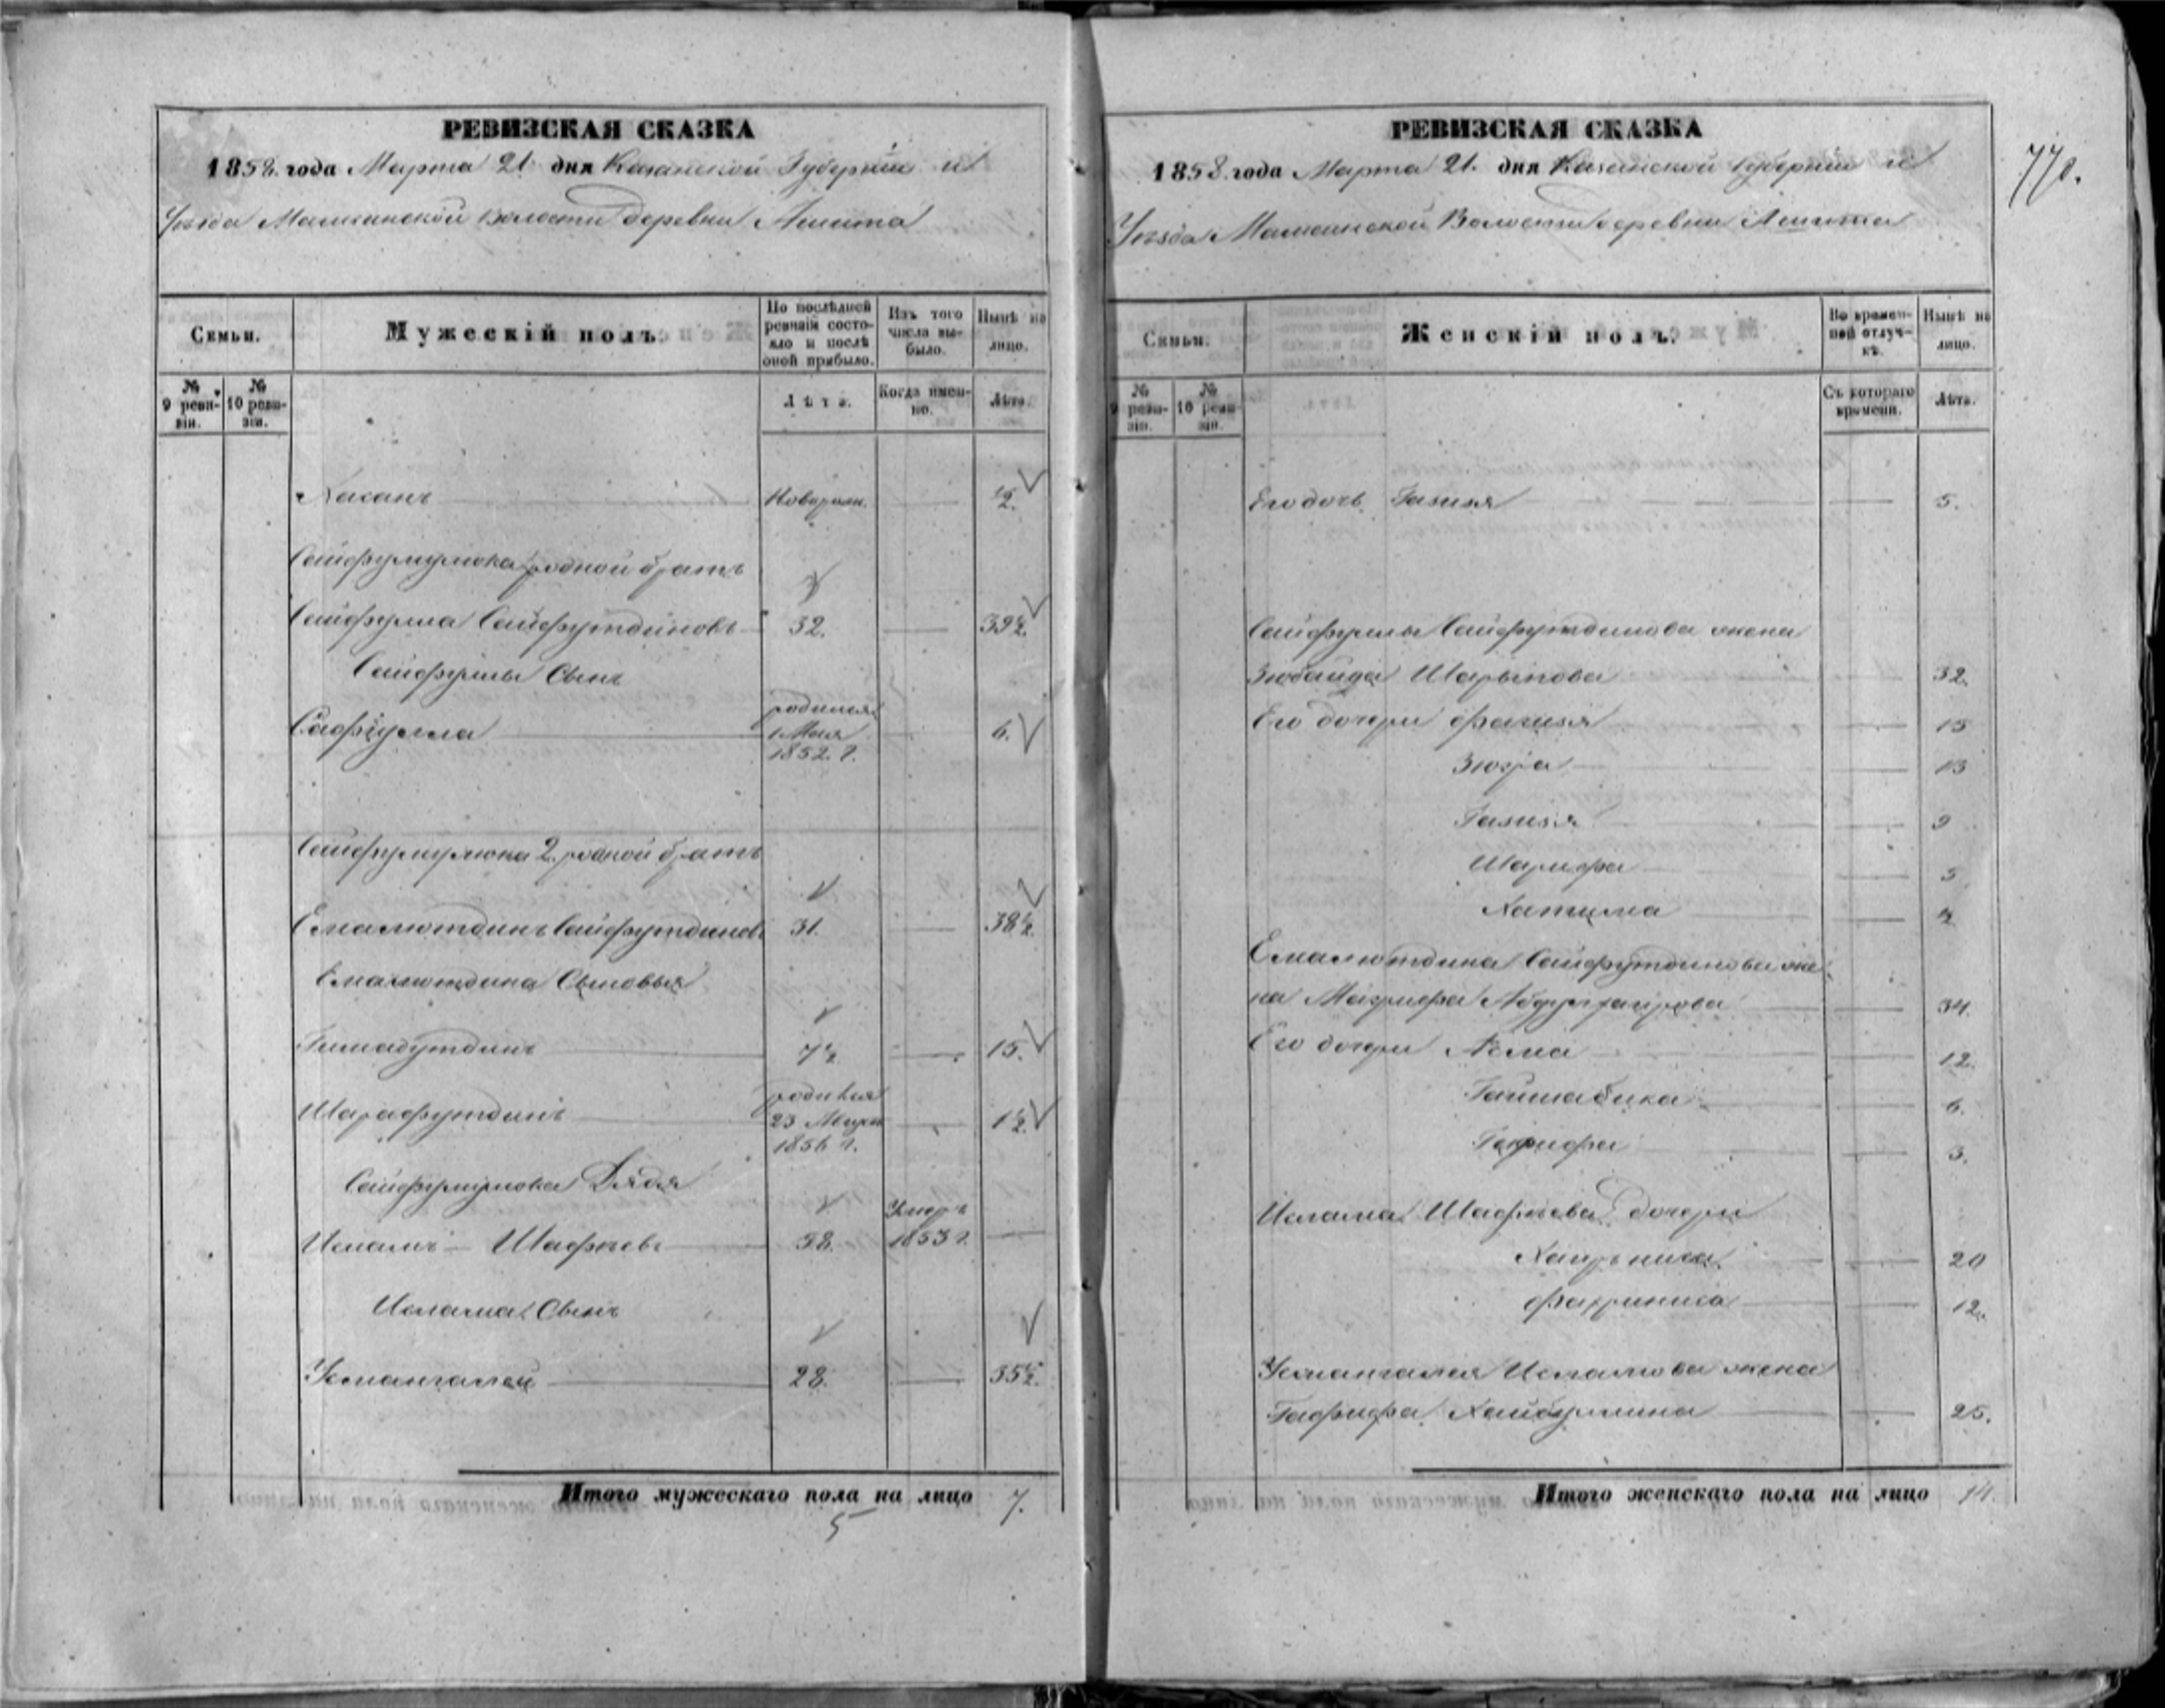 РЕВИЗСКАЯ СКАЗКА
1858. года Марта 21 дня Казанской Губерніи и
Уѣзда Мамсинской Волости деревни Ашита
Семьи.
Мужескій полъ.
По послѣдней ревизіи состояло и послѣ оной прибыло.
Изъ того числа выбыло.
Нынѣ на лицо.
№ 9 ревизіи.
№ 10 ревизіи.
Лѣта.
Когда именно.
Лѣта.
Хасанъ Новорож. 1/2
Сайфулмулюка родной братъ
Сайфулла Сайфутдиновъ 32. 39 1/2.
Сайфуллы Сынъ
Сафіулла родился 1 Мая 1852. г. 6.
Сайфулмулюка 2. родной братъ
Емалютдинъ Сайфутдиновъ 31. 38 1/2.
Емалютдина Сыновья
Гимадутдинъ 7 1/2 15.
Шарафутдинъ родился 23 1856 г. 1 1/2.
Сайфулмулюка Дядя
Исламъ Шафѣевъ 58. Умеръ 1853 г.
Ислама Сынъ
Усмангалей 28. 35 1/2.
Итого мужескаго пола на лицо 7.
5
РЕВИЗСКАЯ СКАЗКА
1858. года Марта 21. дня Казанской Губерніи и
Уѣзда Мамсинской Волости деревни Ашита
770.
Семьи.
Женскій полъ.
Во временной отлучкѣ.
Нынѣ на лицо.
№ 9 ревизіи.
№ 10 ревизіи.
Съ котораго времени.
Лѣта.
Его дочь Газизя 5.
Сайфуллы Сайфутдинова жена
Зюбайда Шарыпова 32.
Его дочери Фазизя 15
Зюгра 13
Газизя 9
Шарифа 5
Хатима 2
Емалютдина Сайфутдинова же-
на Магрифа 34.
Его дочери Асма 12.
Гайшабика 6.
3.
Ислама Шафѣева дочери
Хаирниса 20
Фахриниса 12.
Усмангалея Исламова жена
Гафифа Хайбуллина 25.
Итого женскаго пола на лицо 14.